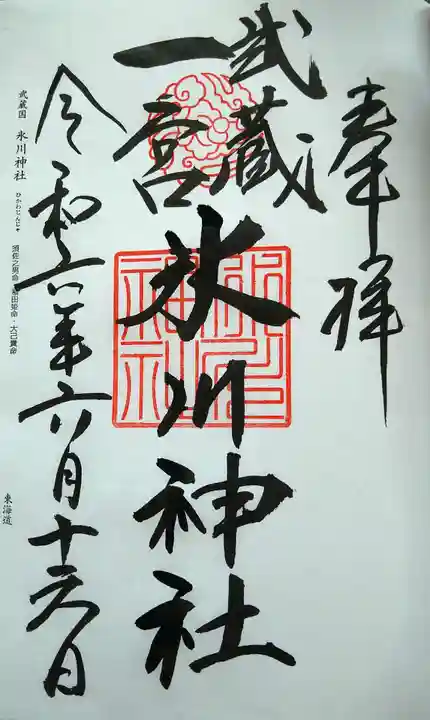 奉拝
武蔵
一宮
氷川神社
令和六年六月十六日
武蔵国 氷川神社
ひかわじんじゃ
須佐之男命・稲田姫命・大己貴命
東海道
氷川神社